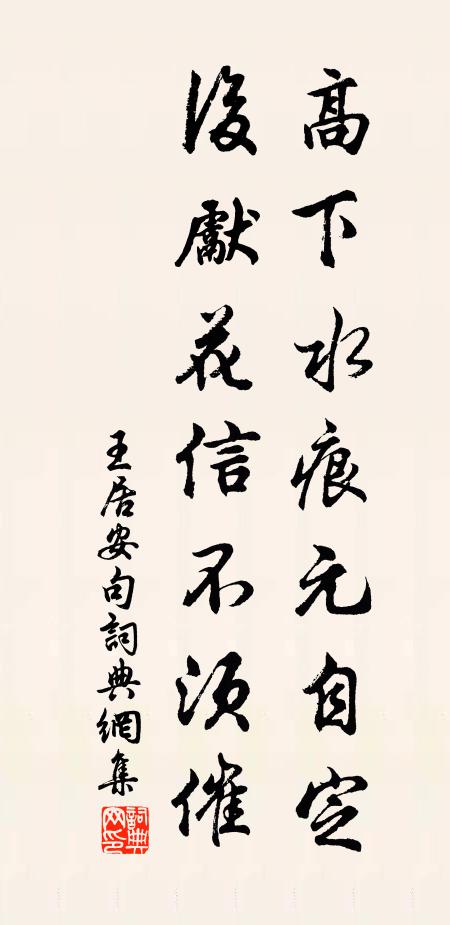 高下水痕元自定
後獻花信不須催
王居安句詞典網集
詞典网印